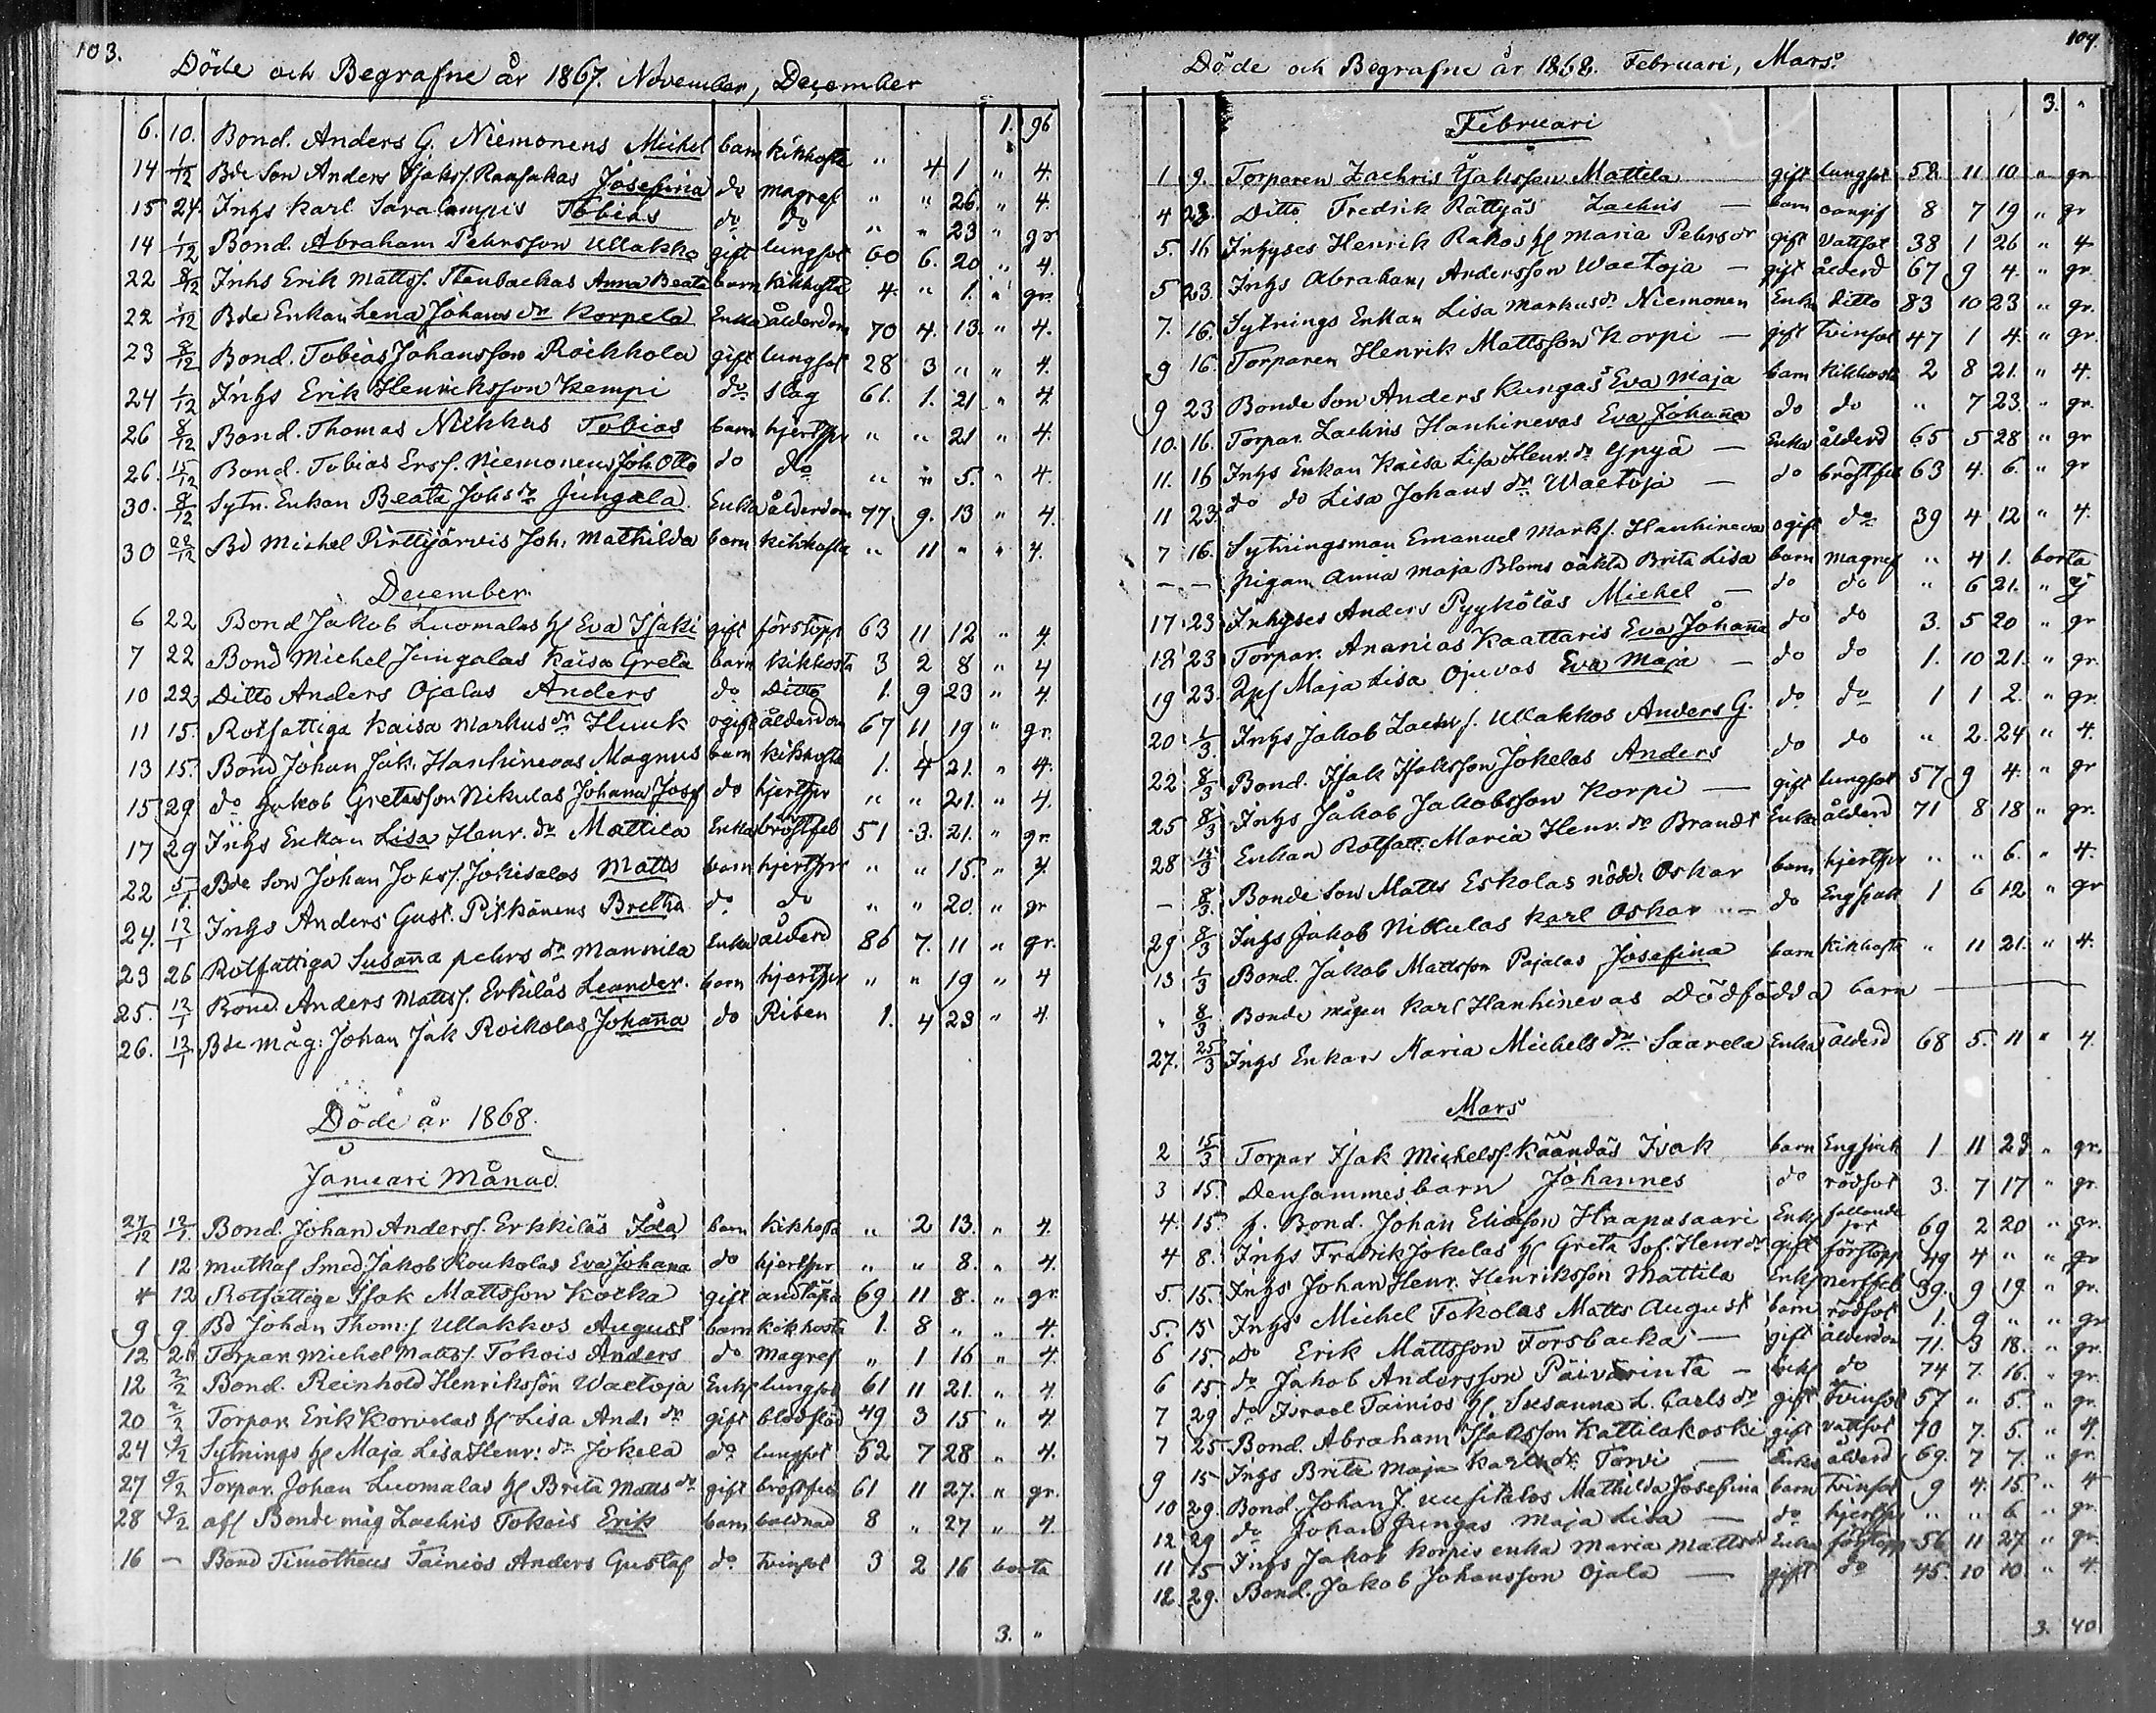 103.
Döde och Begrafne år 1867. November, December
1. 96
6. 10. Bond. Anders G. Niemonens Michel barn kikhosta " 4 1 " 4.
14 1/12 Bde Son Anders Isaks. Raasakas Josefina do magref " " 26. " 4.
15 24. Inhs Karl Saralampis Tobias do do " " 23 " gr
14 1/12 Bond. Abraham Pehrsson Ullakko gift lungsot 60 6. 20 " 4.
22 8/12 Inhs Erik Mattss. Stenbackas Anna Beata barn kikhosta 4. " 1. " gr.
22 1/12 Bde Enkan Lena Johans dr Korpela Enka ålderdom 70 4. 13. " 4.
23 8/12 Bond. Tobias Johansson Roikkola gift lungsot 28 3 " " 4.
24 1/12 Inhs Erik Henriksson Kempi do slag 61. 1. 21 " 4.
26 8/12 Bond. Thomas Nikkus Tobias barn hjertspr " " 21 " 4.
26. 15/12 Bond. Tobias Erss. Niemonens Joh. Otto do do " " 5. " 4.
30. 8/12 Sytn. Enkan Beata Johs dr Jungala Enka ålderdom 77 9. 13 " 4.
30 22/12 Bd Michel Pirttijärvis Joh. Mathilda barn kikhosta " 11 " " 4.
December
6 22 Bond Jakob Luomalas h Eva Isaki gift förstopp 63 11 12 " 4.
7 22 Bond Michel Jungalas Kaisa Greta barn kikhosta 3 2 8 " 4
10 22. Ditto Anders Ojalas Anders do Ditto 1. 9 23 " 4.
11 15. Rotfattiga Kaisa Markus dr Huuk ogift ålderdom 67 11 19 " gr.
13 15. Bond Johan Jak. Hanhinevas Magnus barn kikhosta 1. 4 21. " 4.
15 29 do Jakob Gretasson Nikulas Johana Josef do hjertspr " " 21. " 4.
17 29 Inhs Enkan Lisa Henr. dr Mattila Enka bröstfeb 51 3. 21. " gr.
22 5/1 Bde Son Johan Johs. Jokisalos Matts barn hjertspr " " 15. " 4.
24. 12/1 Inhs Anders Gust. Pitkänens Bretha do do " " 20. " gr
23 26 Rotfattiga Susanna pehrs dr Mannila Enka ålderd 86 7. 11 " gr.
25. 12/1 Bond. Anders Matts. Erkilås Leander. barn hjertspr " " 19 " 4
26. 12/1 Bde måg: Johan Jak Roikolas Johanna do Risen 1. 4 23 " 4
Döde år 1868.
Januari Månad.
27/12 12/1 Bond. Johan Anderss. Erkkiläs Ida barn kikhosta " 2 13. " 4.
1 12 Smed Jakob Koukolas Eva Johana do hjertspr " " 8. " 4.
4 12 Rotfattige Isak Mattsson Kocka gift andtäpa 69 11 8. " gr.
9 9 Bd Johan Thoms Ullakkos August barn kikhosta 1. 8 " " 4.
12 26 Torpar. Michel Mattss. Tokois Anders do Magref " 1 16 " 4.
12 2/2 Bond. Reinhold Henriksson Waetoja Enkl lungsot 61 11 21. " 4.
20 2/2 Torpar Erik Korvelas h Lisa And. dr gift blodflöd 49 3 15 " 4
24 9/2 Sytnings h Maja Lisa Henr: dr Jokela do lungsot 52 7 28 " 4.
27 9/2 Torpar. Johan Luomalas h Brita Matts dr gift bröstfeb 61 11 27. " gr.
28 9/2 Bonde måg Zachris Tokois Erik barn 8 " 27 " 4
16 – Bond Timotheus Tainios Anders Gustaf do tvinsot 3 2 16 borta
3. "
104.
Döde och Begrafne år 1868. Februari, Mars.
3. "
Februari
1 9. Torparen Zachris Isaksson Mattila gift lungsot 52 11 10 " gr
4 23 Ditto Fredrik Rättyäs Zachris – barn 8 7 19 " gr
5. 16 Inhyses Henrik Rahos h Maria Pehrsdr gift Vattsot 38 1 26 " 4
5 23. Inhs Abraham Andersson Waetoja – gift ålderd 67 9 4. " gr.
7. 16. Sytnings Enkan Lisa Markusdr Niemonen Enka ditto 83 10 23 " gr.
9 16. Torparen Henrik Mattsson Korpi – gift tvinsot 47 1 4. " gr.
9 23 Bonde Son Anders Kungas Eva Maja barn kikhosta 2 8 21. " 4.
10. 16. Torpar. Zachris Hanhinevas Eva Johanna do do " 7 23. " gr.
11. 16 Inhs Enkan Kaisa Lisa Henr. dr Ypyä – Enka ålderd 65 5 28 " gr
11 23. do do Lisa Johans dr Waetoja – do bröstfeb 63 4. 6. " gr
7 16. Sytningsman Emanuel Marks. Hanhineva ogift do 39 4 12 " 4.
– – Pigan Anna Maja Bloms oäkta Brita Lisa barn Magref " 4 1. borta
17 23 Inhyses Anders Pyykölås Michel – do do " 6 21. "
18 23 Torpar. Ananias Kaattaris Eva Johanna do do 3. 5 20 " gr
19 23. Maja Lisa Ojuvas Eva Maja – do do 1. 10 21. " gr.
20 1/3. Inhs Jakob Zachs. Ullakkos Anders G. do do 1 1 2. " gr.
22 8/3 Bond. Isak Isaksson Jokelas Anders do do " 2. 24 " 4.
25 8/3 Inhs Jakob Jakobsson Korpi – gift lungsot 57 9 4. " gr
28 15/3 Enkan Rotfatt. Maria Henr. dr Brandt Enka ålderd 71 8 18 " gr.
– 8/3. Bonde Son Matts Eskolas nödd. Oskar barn hjertspr " " 6. " 4.
29 8/3 Inhs Jakob Nikulas Karl Oskar – do Engsjuk 1 6 12 " gr
13 1/3 Bond. Jakob Mattsson Pajalas Josefina barn kikhosta " 11 21. " 4.
" 8/3 Bonde mågen Karl Hanhinevas Dödfödda barn
27. 25/3 Inhs Enkan Maria Michels dr Saarela Enka ålderd 68 5. 11 " 4.
Mars
2 15/3 Torpar Isak Michelss. Käändäs Isak barn Engsjuk 1 11 23. " gr.
3 15. Densammes barn Johannes do rödsot 3. 7 17 " gr.
4. 15. f. Bond. Johan Eliasson Haapasaari Enkl fallande sot 69 2 20 " gr.
4 8. Inhs Fredrik Jokelas h Greta Sof. Henr dr gift förstopp 49 4 " " gr
5. 15. Inhs Johan Henr. Henriksson Mattila Enkl nerffeb 39. 9 19. " gr.
5. 15 Inhs Michel Tokolas Matts August barn rödsot 1. 9 " " gr
6 15. Do Erik Mattsson Forsbacka – gift ålderdom 71. 3 18. " gr.
6 15 do Jakob Andersson Päivärinta – enkl do 74 7. 16. " gr.
7 29 do Israel Tainios h Susanna L. Carls dr gift tvinsot 57 " 5. " gr.
7 25 Bond. Abraham Isaksson Kattilakoski gift vattsot 70 7. 5. " 4.
9 15 Inhs Brita Maja Karls dr Torvi – Enka ålderd 69. 7 7. " gr.
10 29. Bond. Johan J. Uusitalos Mathilda Josefina barn tvinsot 9 4. 15. " 4
12 29 do Johan Jungas Maja Lisa – do hjertspr " " 6 " gr.
11 15 Inhs Jakob Korpis enka Maria Mattsdr Enka förstopp 56 11 27 " gr.
12. 29. Bond. Jakob Johansson Ojala – gift do 45. 10 10. " 4.
3. 40